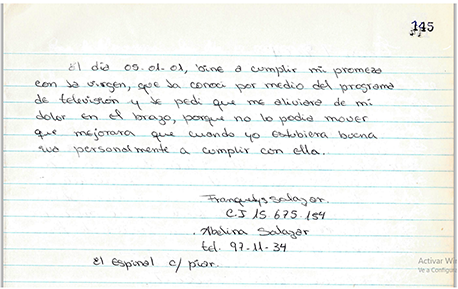 145
El dia 05.01.01, bine a cumplir mi promeza
con la virgen, que la conoci por medio del programa
de televisión y le pedi que me aliviara de mi
dolor en el brazo, porque no lo podia mover
que mejorara que cuando yo estubiera buena
iva personalmente a cumplir con ella.
Franquelys Salazar.
C.I 15 675 154
Abelina Salazar
tel. 97-11-34
El Espinal c/ piar.
Activar Win
Ve a Configura